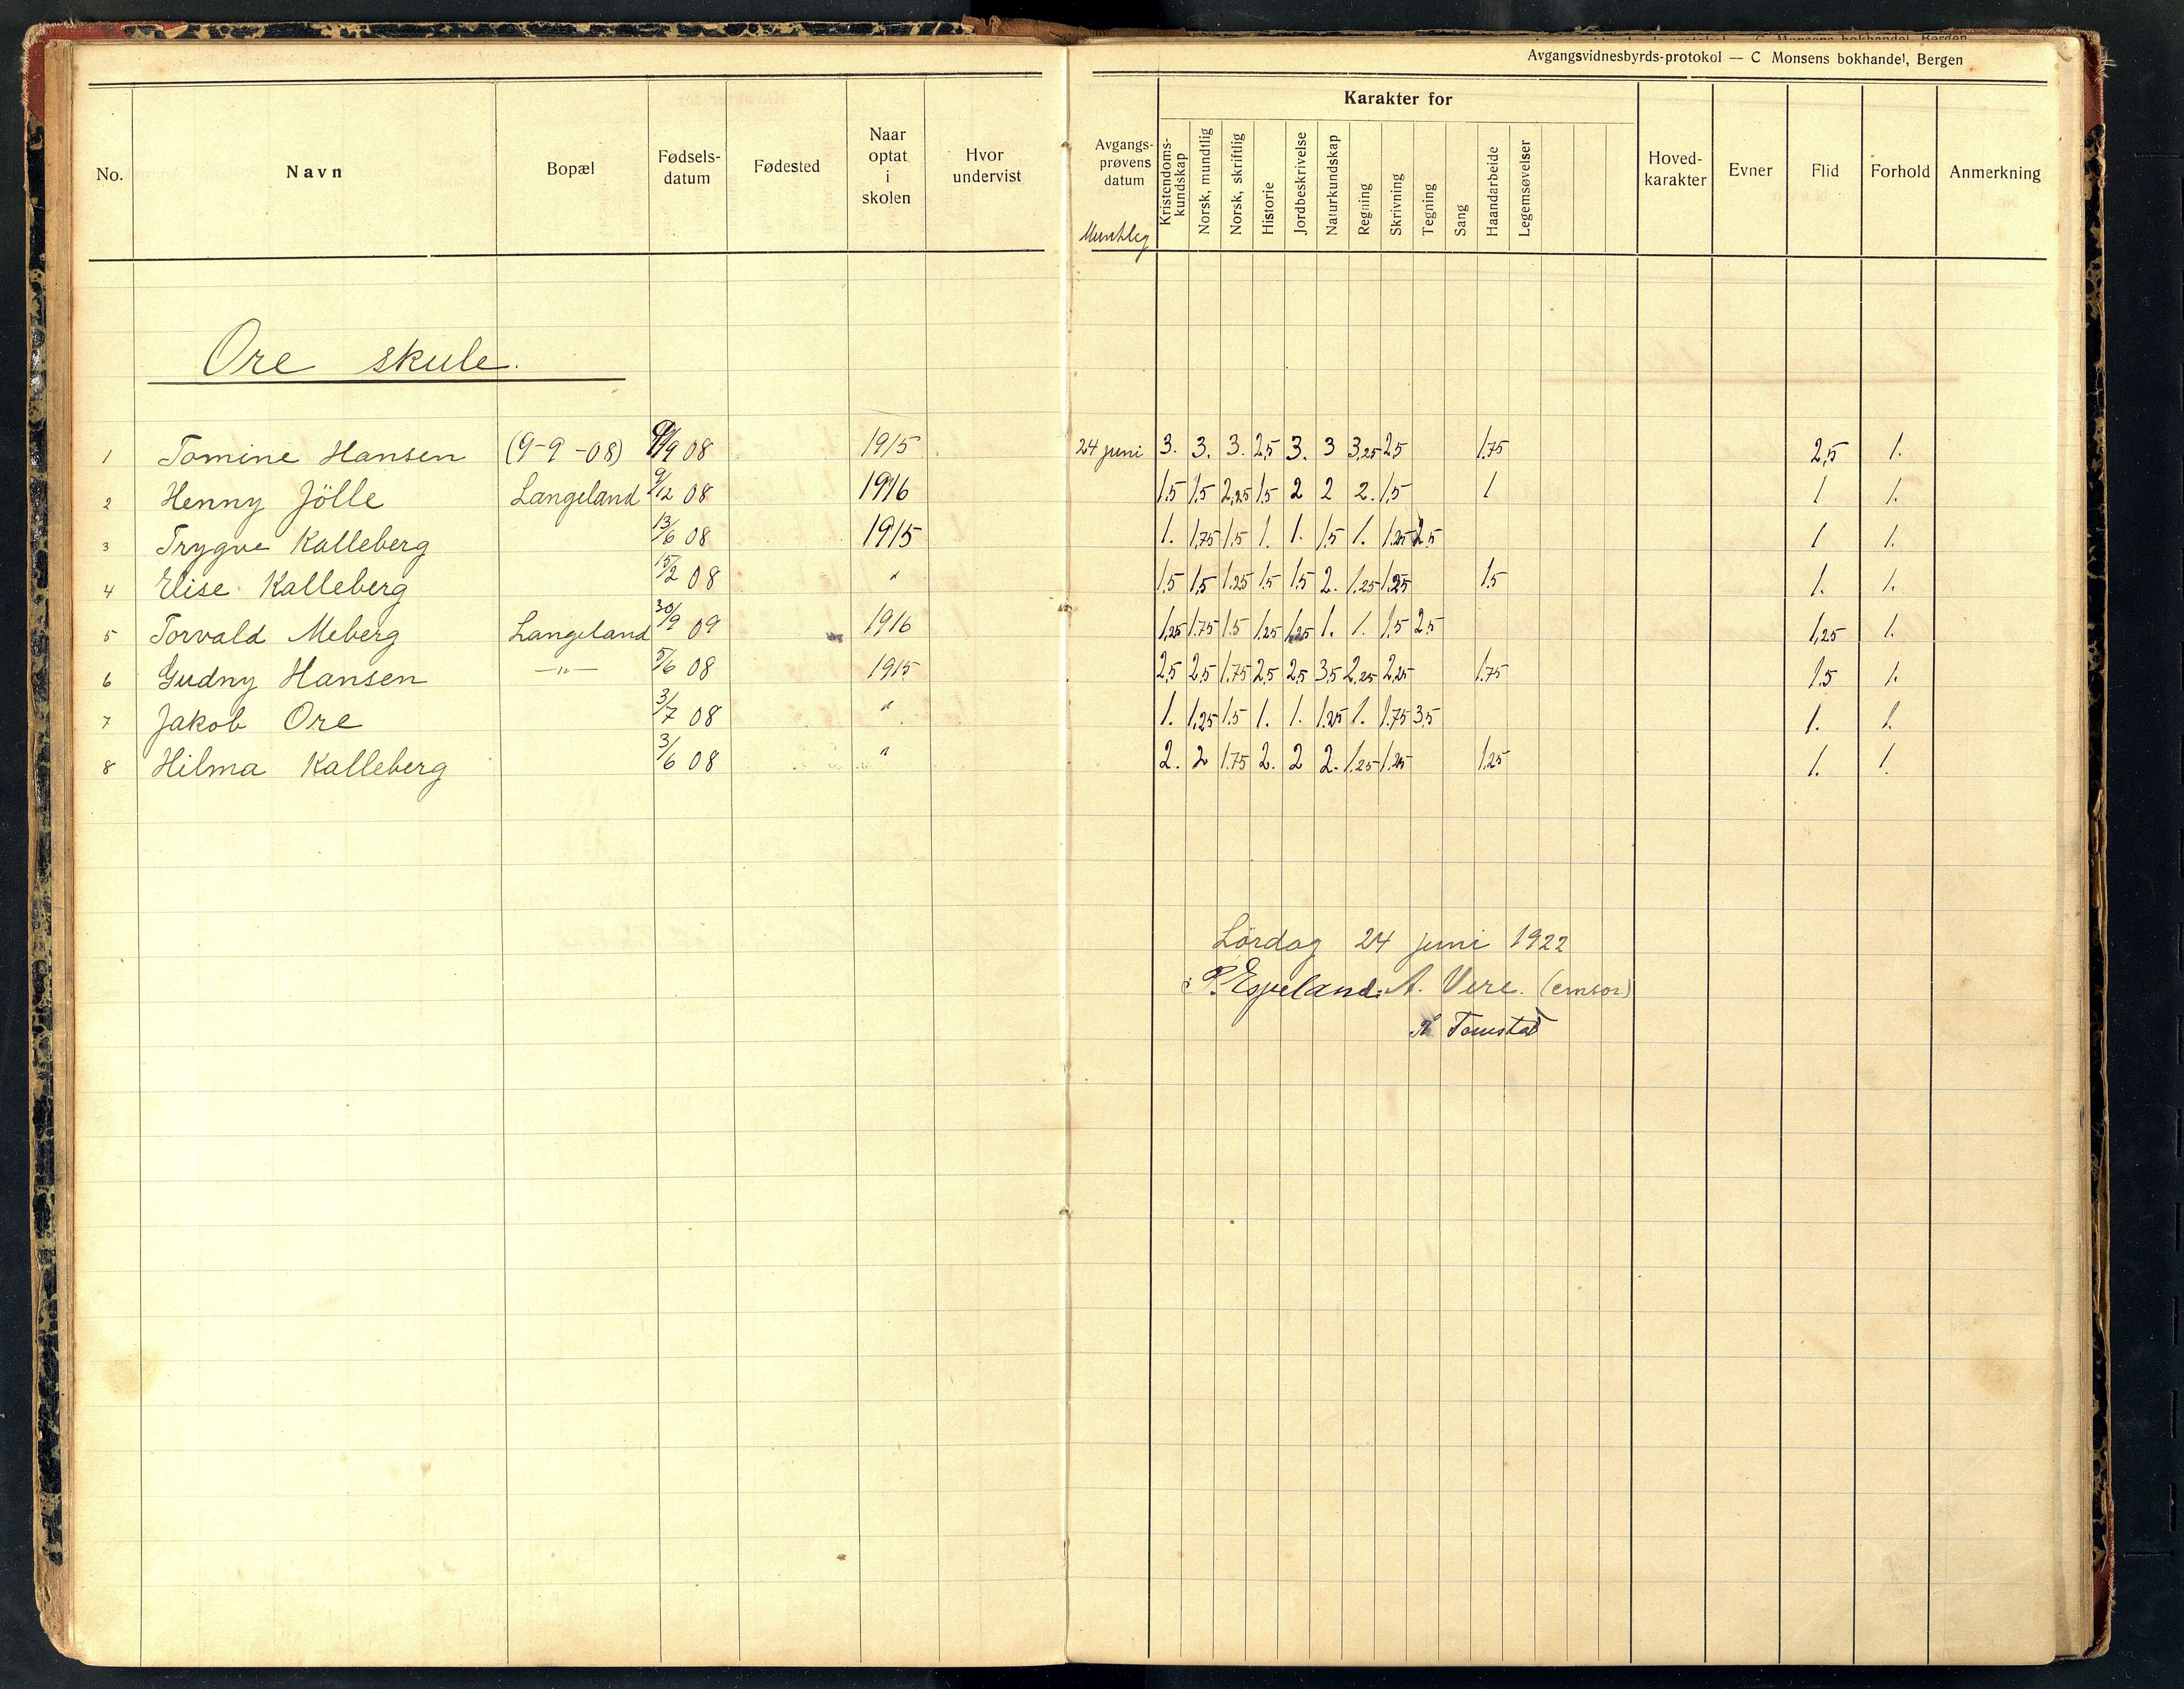 Avgangsvidnesbyrds-protokol — C Monsens bokhandel, Bergen
No. Navn Bopæl Fødsels-datum Fødested Naar optat i skolen Hvor undervist Avgangs-prøvens datum Karakter for Kristendoms-kundskap Norsk, mundtlig Norsk, skriftlig Historie Jordbeskrivelse Naturkundskap Regning Skrivning Tegning Sang Haandarbeide Legemsøvelser Hoved-karakter Evner Flid Forhold Anmerkning
Ore skule.
1 Tomine Hansen (9-9-08) 9/9 08 1915 24 juni 3. 3. 3. 2,5 3. 3 3,25 2,5 1,75 2,5 1.
2 Henny Jölle Langeland 9/12 08 1916 1,5 1,5 2,25 1,5 2 2 2. 1,5 1 1 1.
3 Trygve Kalleberg 13/6 08 1915 1. 1,75 1,5 1. 1. 1,5 1. 1,25 2,5 1 1.
4 Elise Kalleberg 15/2 08 " 1,5 1,5 1,25 1,5 1,5 2. 1,25 1,25 1,5 1. 1.
5 Torvald Meberg Langeland 30/9 09 1916 1,25 1,75 1,5 1,25 1,25 1. 1. 1,5 2,5 1,25 1.
6 Gudny Hansen —"— 5/6 08 1915 2,5 2,5 1,75 2,5 2,5 3,5 2,25 2,25 1,75 1,5 1.
7 Jakob Ore 3/7 08 " 1. 1,25 1,5 1. 1. 1,25 1. 1,75 3,5 1. 1.
8 Hilma Kalleberg 3/6 08 " 2. 2 1,75 2. 2 2. 1,25 1,25 1,25 1. 1.
Lördag 24 juni 1922
P. Espeland. A. Vere. (censor.)
Tomstad